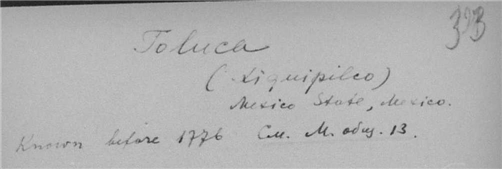 393
Toluca
(Xiquipilco)
Mexico State, Mexico.
Known before 1776 См. М. общ. 13.